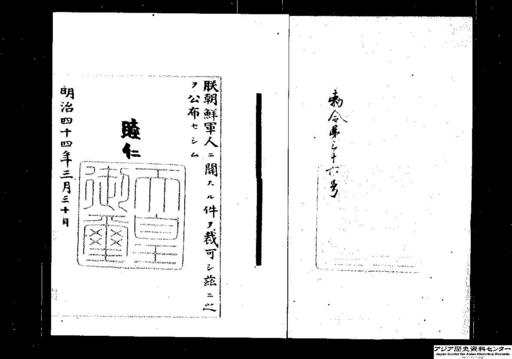 勅令第三十六号
朕朝鮮軍人ニ関スル件ヲ裁可シ茲ニ之
ヲ公布セシム
睦仁
天皇御璽
明治四十四年三月三十日
アジア歴史資料センター
Japan Center for Asian Historical Records